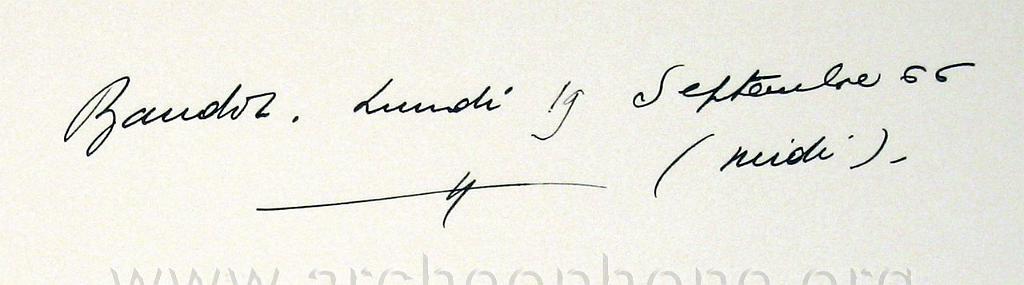 Bandol. Lundi 19 Septembre 66
(midi).-
www.archeophone.org